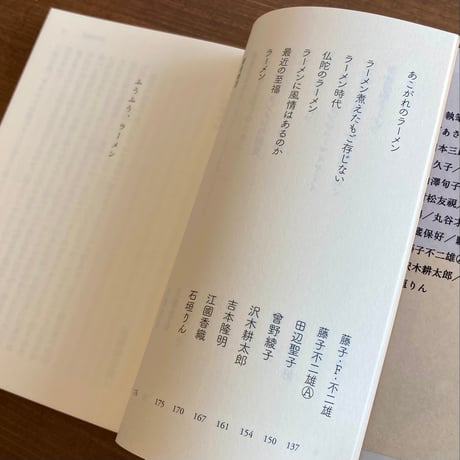 あこがれのラーメン
ラーメン煮えたもご存じない
ラーメン時代
仏陀のラーメン
ラーメンに風情はあるのか
最近の至福
ラーメン
藤子・F・不二雄
藤子不二雄Ⓐ
田辺聖子
曾野綾子
沢木耕太郎
吉本隆明
江國香織
石垣りん
137
150
154
161
167
170
175
ふうふう、ラーメン
執筆
あさ
本三
久子／
澤旬子
松友視
／丸谷才
蔵保好／
子不二雄Ⓐ
沢木耕太郎／
垣りん